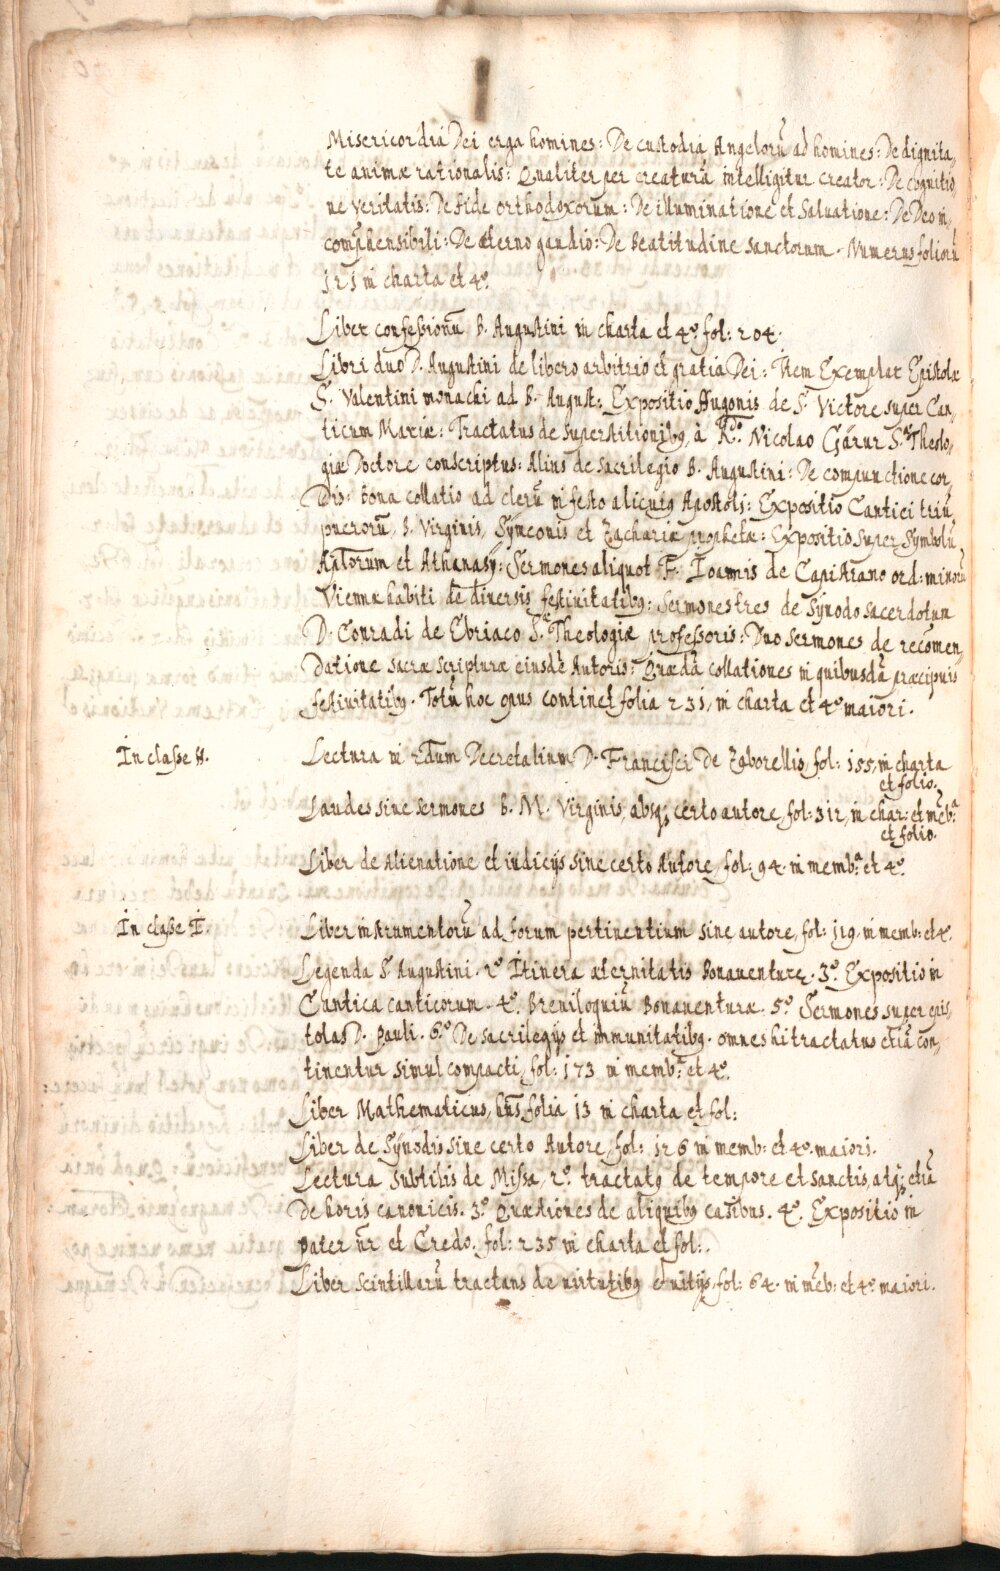 Misericordia Dei erga homines: De custodia Angelorũ ad homines: De dignita,,
te animæ rationalis: Qualiter per creaturã intelligitur creator: De cognitio,,
ne veritatis: De fide orthodoxorum: De illuminatione et Saluatione: De Deo in,,
comp̃hensibili: De æterno gaudio: De Beatitudine sanctorum. Numerus foliorũ
121 in charta et 4º.
Liber confessionũ B. Augustini in charta et 4º fol: 204.
Libri duo D. Augustini de libero arbitrio et gratia Dei: Item Exemplar Epistolæ
S. Valentini monachi ad B. August: Expositio Hugonis de S. Victore super Can,,
ticum Mariæ: Tractatus de superstitionibꝯ à R.º Nicolao Gärur S.æ Theolo,,
giæ Doctore conscriptus: Alius de sacrilegio B. Augustini: De compunctione cor,,
dis: bona collatio ad clerũ in festo alicuiꝯ Apostoli: Expositio Cantici triũ
puerorũ, B. Virginis, Sÿmeonis et Zachariæ prophetæ: Expositio super Symbolũ
Apłorum et Athanasÿ: Sermones aliquot F. Ioannis de Capistrano ord: minorũ
Viennæ habiti de diuersis festiuitatibꝯ: Sermones tres de Sÿnodo sacerdotum
D. Conradi de Ebriaco S.æ Theologiæ professoris: Duo sermones de recõmen,,
datione sacræ scripturæ eiusdẽ Autoris: Quædã collationes in quibusdã præcipuis
festiuitatibꝯ. Totũ hoc opus continet folia 231, in charta et 4º maiori.
In classe H. Lectura in 2dum Decretalium D. Francisci de Zaborellis, fol: 155, in charta
et folio.
Laudes siue sermones B. M. Virginis, absqꝫ certo autore, fol: 312, in char: et mẽb.ª
et folio.
Liber de Alienatione et iudicÿs sine certo Autore, fol: 94. in memb.ª et 4º.
In classe I. Liber instrumentorũ ad forum pertinentium sine autore, fol: 119. in memb: et 4º.
Legenda S. Augustini. 2º Itinera æternitatis Bonauenturæ. 3º. Expositio in
Cantica canticorum. 4º. Breuiloquiũ Bonauenturæ. 5º Sermones super epis,,
tolas D. Pauli. 6º De sacrilegÿs et immunitatibꝯ. omnes hi tractatus etiã con,,
tinentur simul compacti, fol: 173 in memb.ª et 4º.
Liber Mathematicus, hñs folia 13 in charta et fol:
Liber de Sÿnodis sine certo Autore, fol: 126 in memb: et 4º. maiori.
Lectura subtilis de Missa, 2º. tractatꝯ de tempore et sanctis, atqꝫ etiã
de horis canonicis. 3º Quæstiones de aliquibꝯ casibus. 4º. Expositio in
pater nr̃ et Credo. fol: 235 in charta et fol:.
Liber Scintillarũ tractans de uirtutibꝯ et uitÿs, fol: 64. in mẽb: et 4º. maiori.